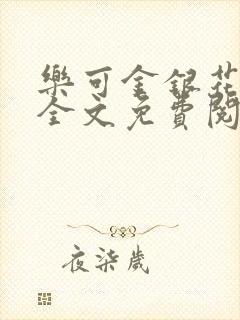 樂可金銀花
全文免費閱
夜柒歲